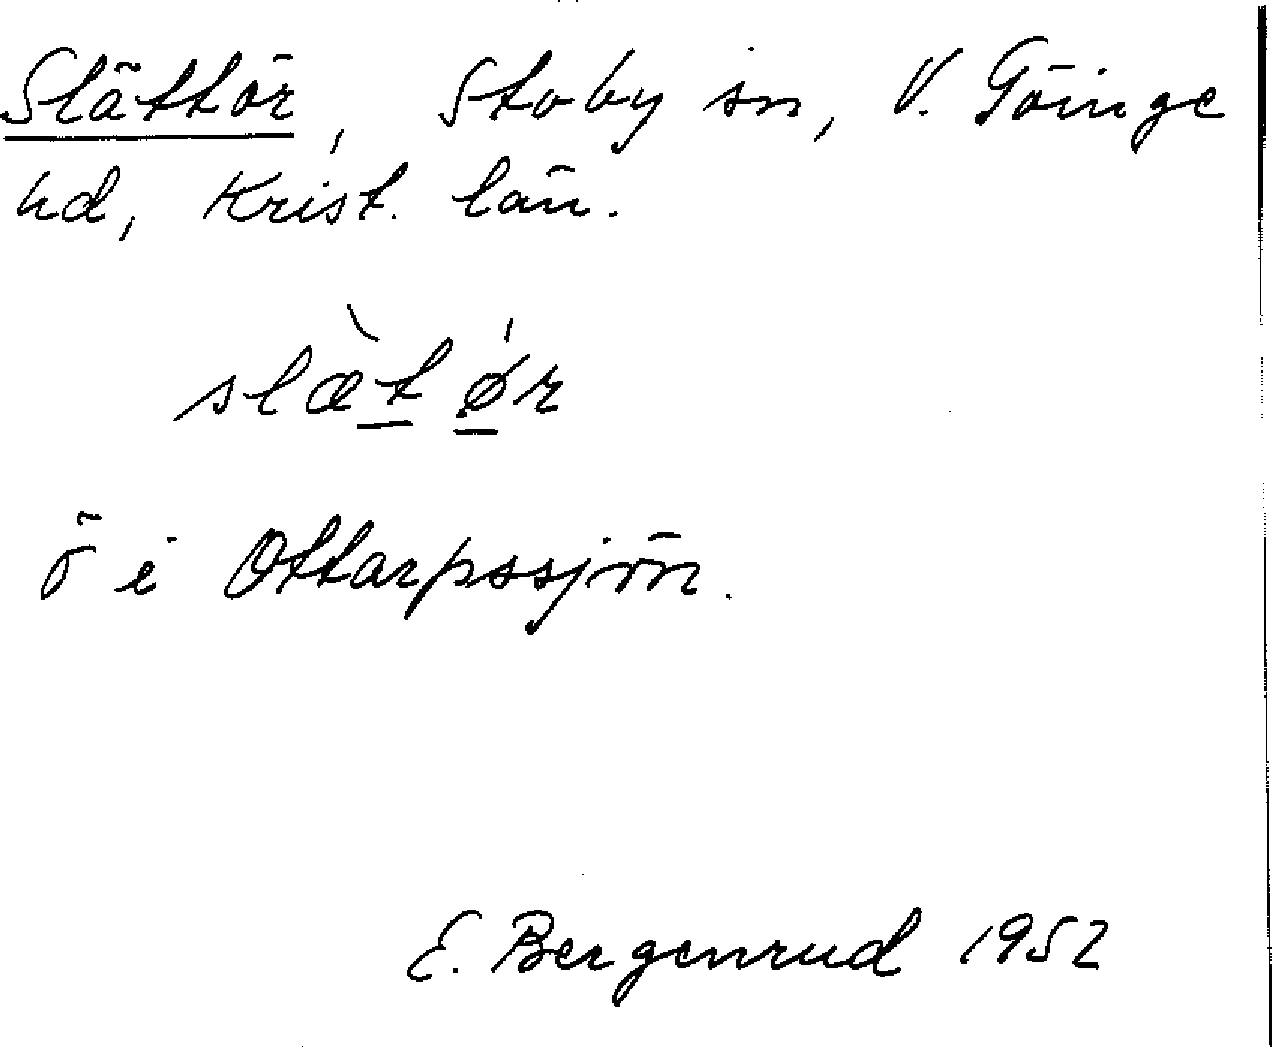 Slättör, Stoby sn, V. Göinge
hd, Krist. län.
slæ̀t ǿr
ö i Ottarpssjön.
E. Bergenrud 1952